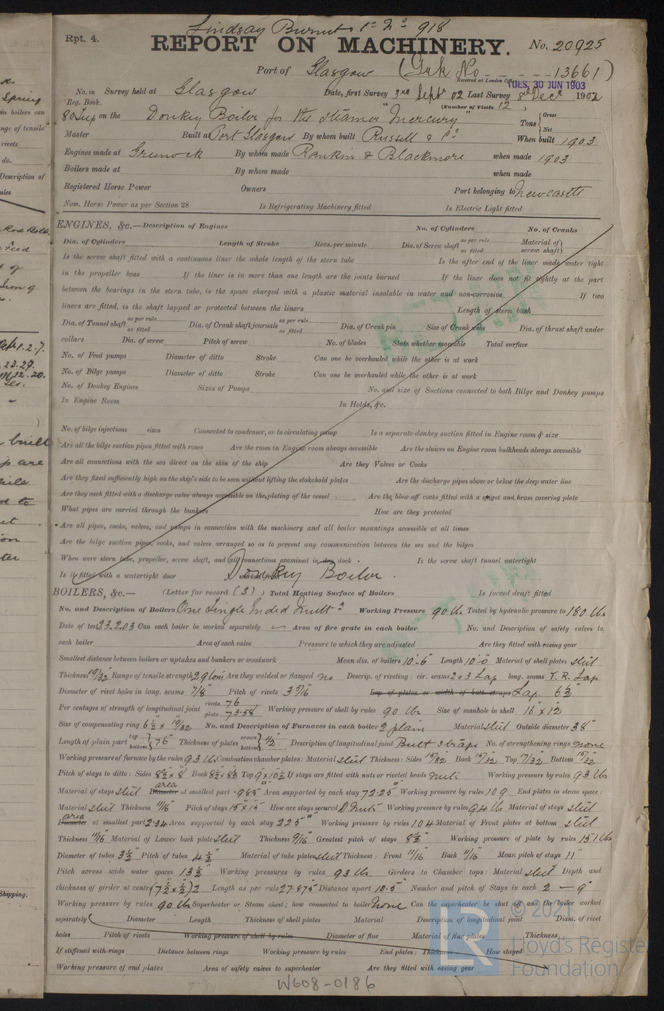 Lindsay Burnet 1= No 918
Rpt. 4.
REPORT ON MACHINERY.
No. 20925
Port of Glasgow (Grk No 13661)
Received at London Office TUES. 30 JUN 1903
No. in Survey held at Glasgow Date, first Survey 3rd Sept 02 Last Survey 8th Decr 1902
Reg. Book. (Number of Visits 12)
80 Sup on the Donkey Boiler for the steamer "Mercury" Tons Gross Net
Master Built at Port Glasgow By whom built Russell & Co When built 1903
Engines made at Greenock By whom made Rankin & Blackmore when made 1903
Boilers made at By whom made when made
Registered Horse Power Owners Port belonging to Newcastle
Nom. Horse Power as per Section 28 Is Refrigerating Machinery fitted Is Electric Light fitted
ENGINES, &c.—Description of Engines No. of Cylinders No. of Cranks
Dia. of Cylinders Length of Stroke Revs. per minute Dia. of Screw shaft as per rule as fitted Material of screw shaft
Is the screw shaft fitted with a continuous liner the whole length of the stern tube Is the after end of the liner made water tight
in the propeller boss If the liner is in more than one length are the joints burned If the liner does not fit tightly at the part
between the bearings in the stern tube, is the space charged with a plastic material insoluble in water and non-corrosive If two
liners are fitted, is the shaft lapped or protected between the liners Length of stern bush
Dia. of Tunnel shaft as per rule as fitted Dia. of Crank shaft journals as per rule as fitted Dia. of Crank pin Size of Crank webs Dia. of thrust shaft under
collars Dia. of screw Pitch of screw No. of blades State whether moveable Total surface
No. of Feed pumps Diameter of ditto Stroke Can one be overhauled while the other is at work
No. of Bilge pumps Diameter of ditto Stroke Can one be overhauled while the other is at work
No. of Donkey Engines Sizes of Pumps No. and size of Suctions connected to both Bilge and Donkey pumps
In Engine Room In Holds, &c.
No. of bilge injections sizes Connected to condenser, or to circulating pump Is a separate donkey suction fitted in Engine room & size
Are all the bilge suction pipes fitted with roses Are the roses in Engine room always accessible Are the sluices on Engine room bulkheads always accessible
Are all connections with the sea direct on the skin of the ship Are they Valves or Cocks
Are they fixed sufficiently high on the ship's side to be seen without lifting the stokehold plates Are the discharge pipes above or below the deep water line
Are they each fitted with a discharge valve always accessible on the plating of the vessel Are the blow off cocks fitted with a spigot and brass covering plate
What pipes are carried through the bunkers How are they protected
Are all pipes, cocks, valves, and pumps in connection with the machinery and all boiler mountings accessible at all times
Are the bilge suction pipes, cocks, and valves arranged so as to prevent any communication between the sea and the bilges
When were stern tube, propeller, screw shaft, and all connections examined in dry dock Is the screw shaft tunnel watertight
Is it fitted with a watertight door
Donkey Boiler.
BOILERS, &c.— (Letter for record (S)) Total Heating Surface of Boilers Is forced draft fitted
No. and Description of Boilers One Single Ended Mult: Working Pressure 90 lbs Tested by hydraulic pressure to 180 lbs
Date of test 23.2.03 Can each boiler be worked separately Area of fire grate in each boiler No. and Description of safety valves to
each boiler Area of each valve Pressure to which they are adjusted Are they fitted with easing gear
Smallest distance between boilers or uptakes and bunkers or woodwork Mean dia. of boilers 10'.6" Length 10'.0" Material of shell plates steel
Thickness 19/32 Range of tensile strength Are they welded or flanged no Descrip. of riveting: cir. seams 2 & 3 Lap long. seams T.R. Lap
Diameter of rivet holes in long. seams 7/8" Pitch of rivets 3 7/16 Lap of plates or width of butt straps Lap 6 3/4"
Per centages of strength of longitudinal joint rivets 76 plate 73.58 Working pressure of shell by rules 90 lbs Size of manhole in shell 16" x 12"
Size of compensating ring No. and Description of Furnaces in each boiler 2 plain Material steel Outside diameter 38"
Length of plain part top bottom 76" Thickness of plates crown bottom 1/2" Description of longitudinal joint Butt straps No. of strengthening rings none
Working pressure of furnace by the rules 93 lbs Combustion chamber plates: Material steel Thickness: Sides 19/32 Back 19/32 Top 19/32 Bottom
Pitch of stays to ditto: Sides Back Top If stays are fitted with nuts or riveted heads nuts Working pressure by rules 93 lbs
Material of stays steel area Diameter at smallest part .985" Area supported by each stay 72.25" Working pressure by rules 109 End plates in steam space:
Material steel Thickness 11/16" Pitch of stays 15" x 15" How are stays secured D Nuts Working pressure by rules 94 lbs Material of stays steel
area Diameter at smallest part 2.34 Area supported by each stay 225" Working pressure by rules 104 Material of Front plates at bottom steel
Thickness 11/16" Material of Lower back plate steel Thickness 9/16" Greatest pitch of stays 8 1/2" Working pressure of plate by rules 151 lbs
Diameter of tubes 3 1/4" Pitch of tubes 4 1/2" Material of tube plates steel Thickness: Front 11/16" Back 11/16" Mean pitch of stays 11"
Pitch across wide water spaces 13 1/2" Working pressures by rules 93 lbs Girders to Chamber tops: Material steel Depth and
thickness of girder at centre (7 1/2 x 1/2) 2 Length as per rule Distance apart 10.5" Number and pitch of Stays in each 2 — 9"
Working pressure by rules 90 lbs Superheater or Steam chest; how connected to boiler none Can the superheater be shut off and the boiler worked
separately Diameter Length Thickness of shell plates Material Description of longitudinal joint Diam. of rivet
holes Pitch of rivets Working pressure of shell by rules Diameter of flue Material of flue plates Thickness
If stiffened with rings Distance between rings Working pressure by rules End plates: Thickness How stayed
Working pressure of end plates Area of safety valves to superheater Are they fitted with easing gear
W608-0186
Lloyd's Register
Foundation